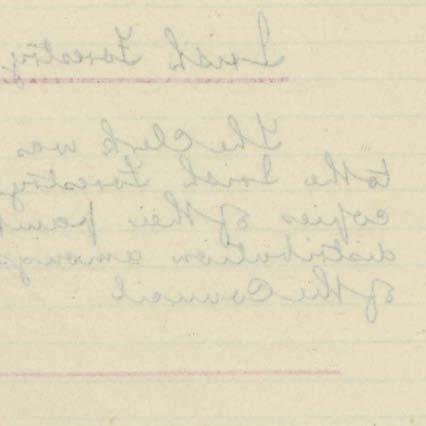 Irish Forestry
The Clerk was
to the Irish Forestry
copies of their
distribution among
of the Council